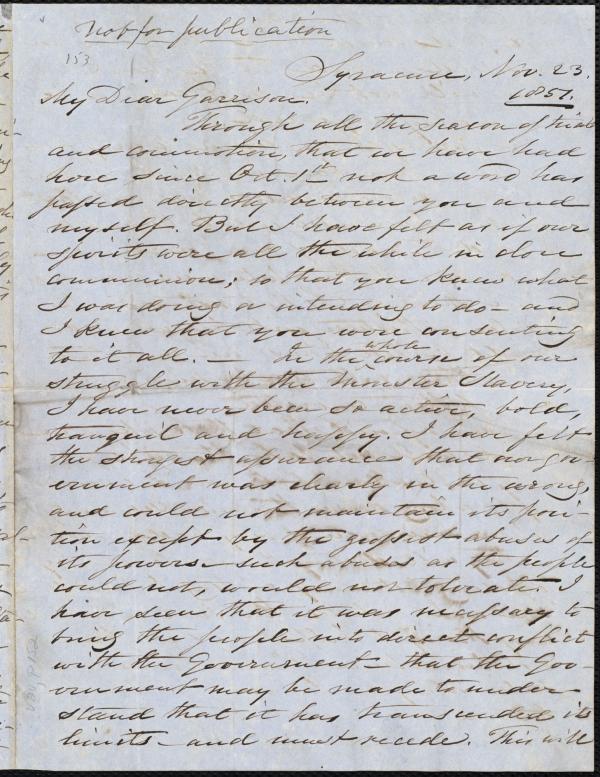 not for publication
153
Syracuse, Nov. 23.
1851.
My Dear Garrison.
Through all the season of trial
and commotion, that we have had
here since Oct. 1st not a word has
passed directly between you and
myself. But I have felt as if our
spirits were all the while in close
communion; so that you knew what
I was doing or intending to do - and
I knew that you were consenting
to it all. — In the whole course of our
struggle with the monster Slavery,
I have never been so active, bold,
tranquil and happy. I have felt
the strongest assurance that our gov-
ernment was clearly in the wrong,
and could not maintain its posi-
tion except by the grossest abuses of
its powers - such abuses as the people
could not, would not tolerate. I
have seen that it was necessary to
bring the people into direct conflict
with the Government - that the Gov-
ernment may be made to under-
stand that it has transcended its
limits - and must recede. This will